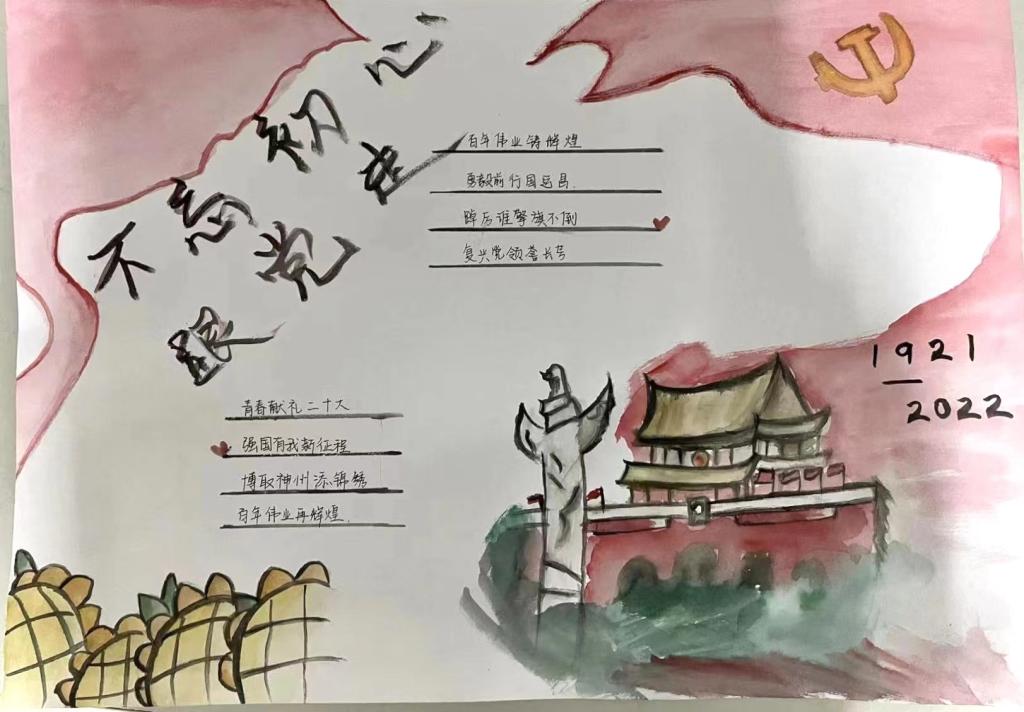 不忘初心
跟党走
百年伟业铸辉煌
勇毅前行国运昌.
踔厉谁擎旗不倒
复兴党领誉长芳
1921
2022
青春献礼二十大
强国有我新征程
博取神州添锦绣
百年伟业再辉煌.